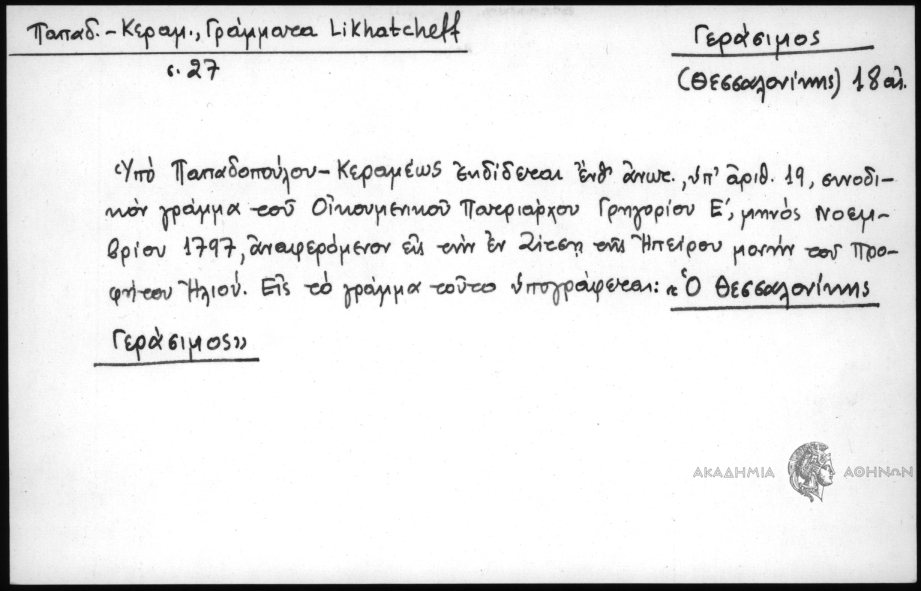 Παπαδ.-Κεραμ., Γράμματα Likhatcheff
σ. 27
Γεράσιμος
(Θεσσαλονίκης) 18 αἰ.
Ὑπὸ Παπαδοπούλου-Κεραμέως ἐκδίδεται ἔνθ' ἀνωτ., ὑπ' ἀριθ. 19, συνοδι-
κὸν γράμμα τοῦ Οἰκουμενικοῦ Πατριάρχου Γρηγορίου Ε', μηνὸς Νοεμ-
βρίου 1797, ἀναφερόμενον εἰς τὴν ἐν Ζίτσῃ τῆς Ἠπείρου μονὴν τοῦ Προ-
φήτου Ἠλιού. Εἰς τὸ γράμμα τοῦτο ὑπογράφεται: «Ὁ Θεσσαλονίκης
Γεράσιμος»
ΑΚΑΔΗΜΙΑ ΑΘΗΝΩΝ